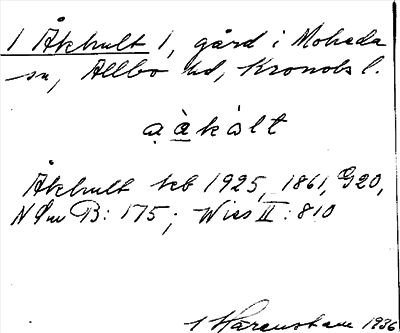 1 Åkhult 1, gård i Moheda
sn, Allbo hd, Kronobs l.
a à k ò l t
Åkhult kb 1925, 1861, G20,
N Sm B: 175; Wies II: 810
1936